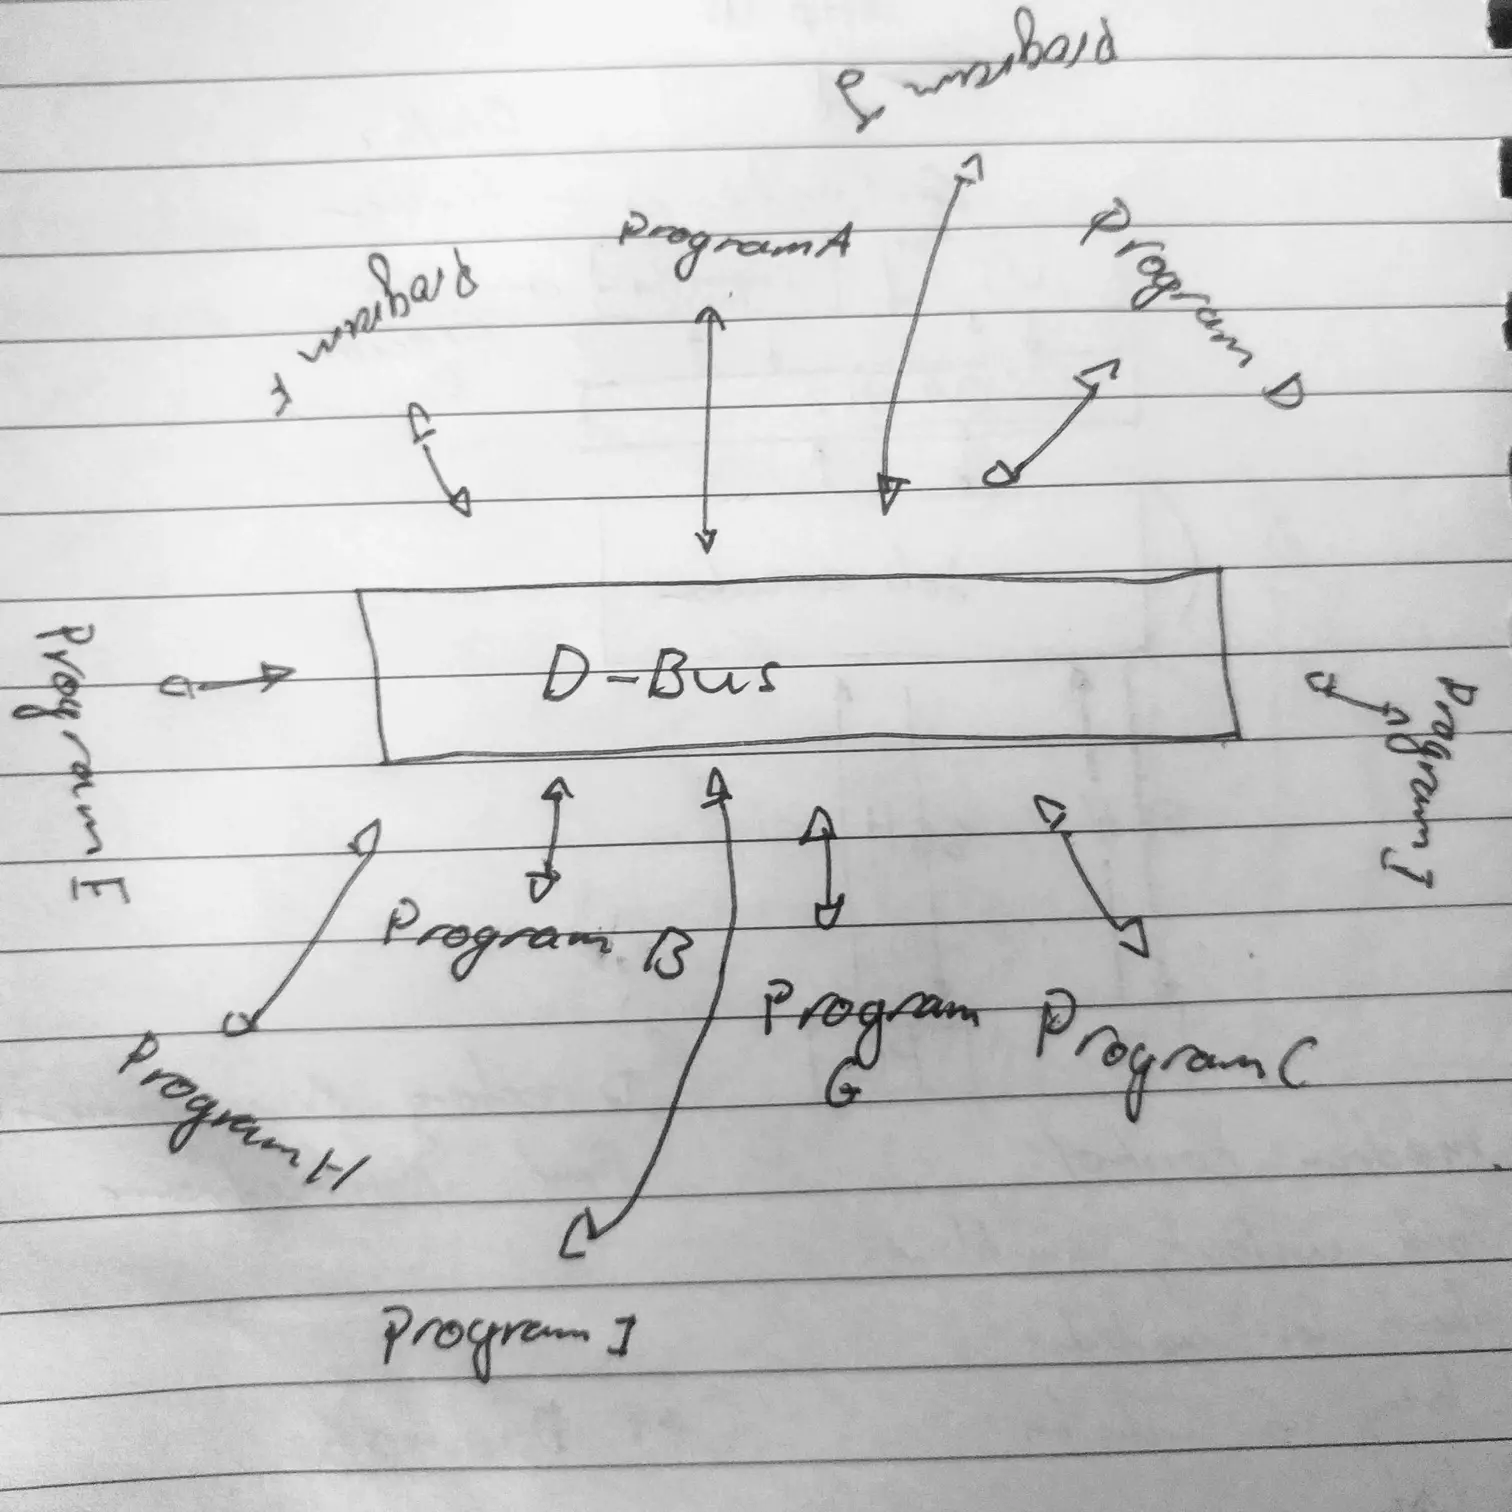 Program J
Program A
Program D
Program F
D-Bus
Program E
Program J
Program B
Program
G
Program C
Program H
Program I